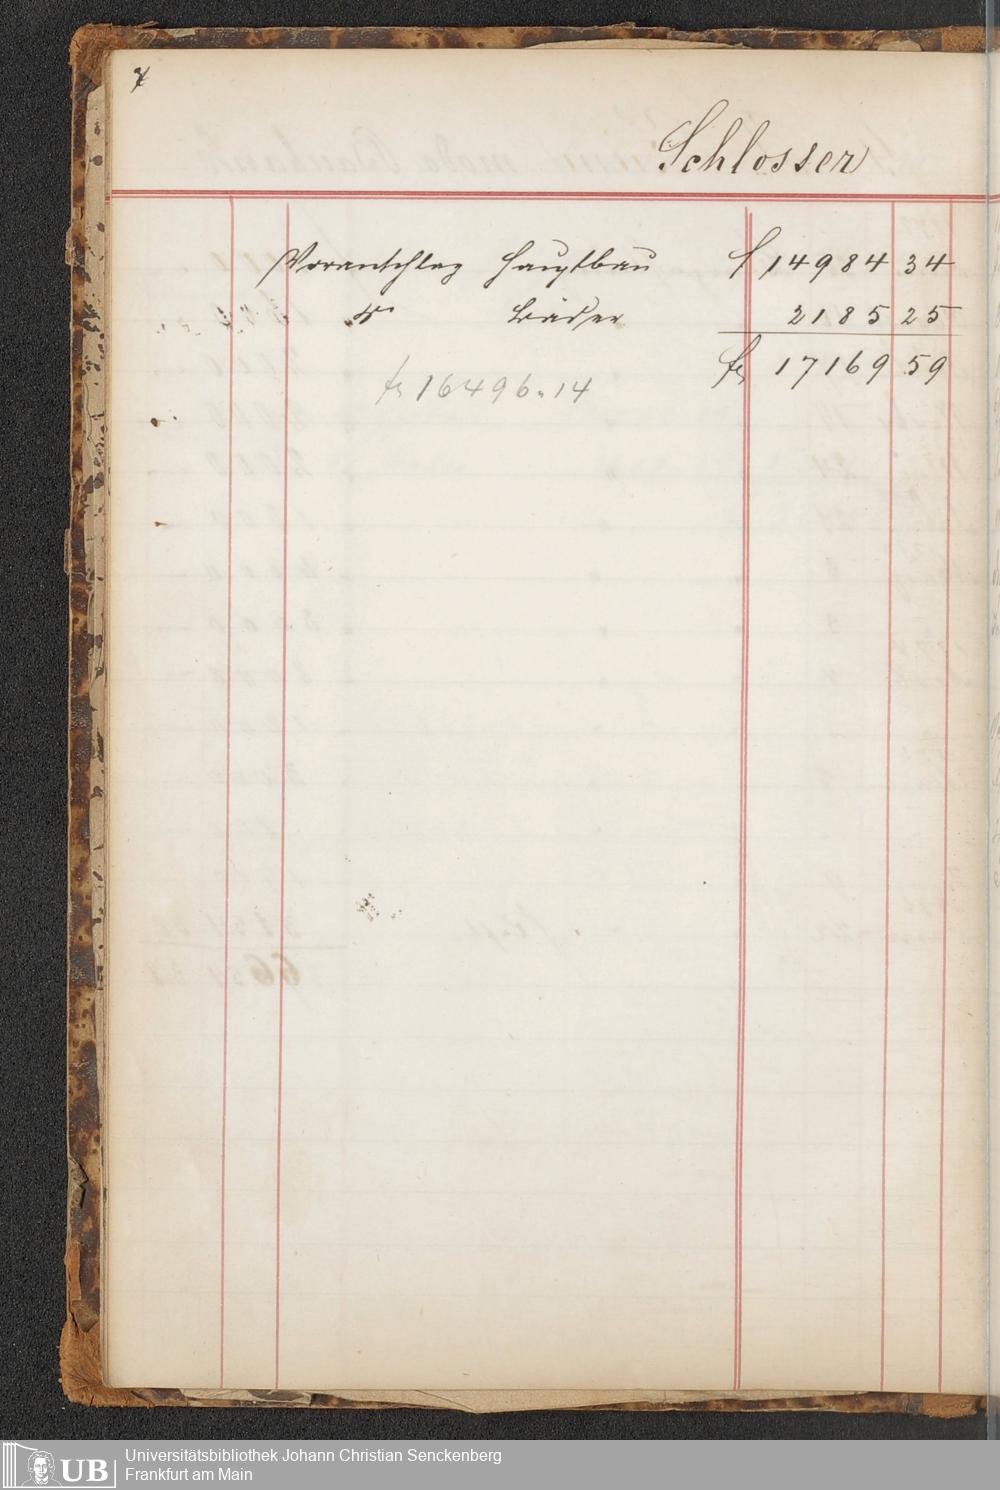 7
Schlosser
Voranschlag Hauptbau f 14984 34
do Bäder 2185 25
fr 17169 59
fr 16496.14
UB
Universitätsbibliothek Johann Christian Senckenberg
Frankfurt am Main